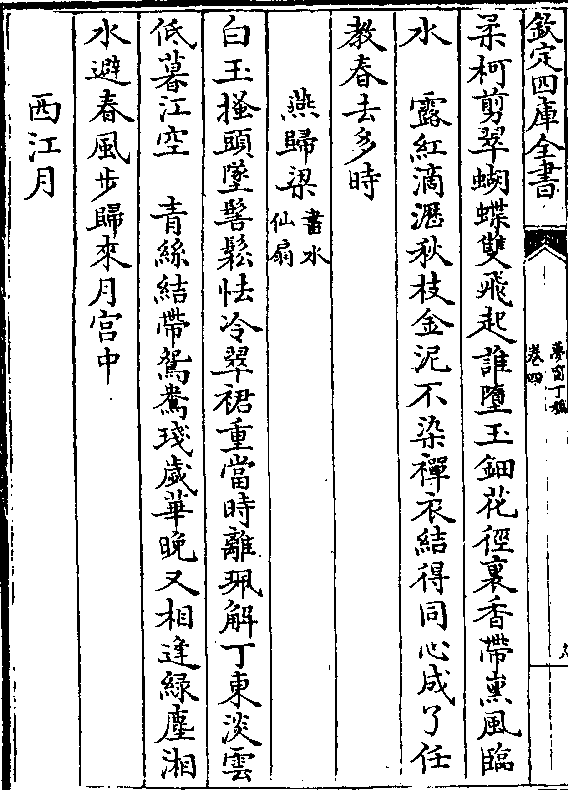 欽定四庫全書
夢窗丁稿
卷四
柔柯剪翠蝴蝶雙飛起誰墮玉鈿花徑裏香帶熏風臨
水　露紅滴瀝秋枝金泥不染禪衣結得同心成了任
教春去多時
燕歸梁書水仙扇
白玉搔頭墜髻鬆怯冷翠裙重當時離珮解丁東淡雲
低暮江空　青絲結帶鴛鴦琖歲華晚又相逢綠塵湘
水避春風步歸來月宮中
西江月